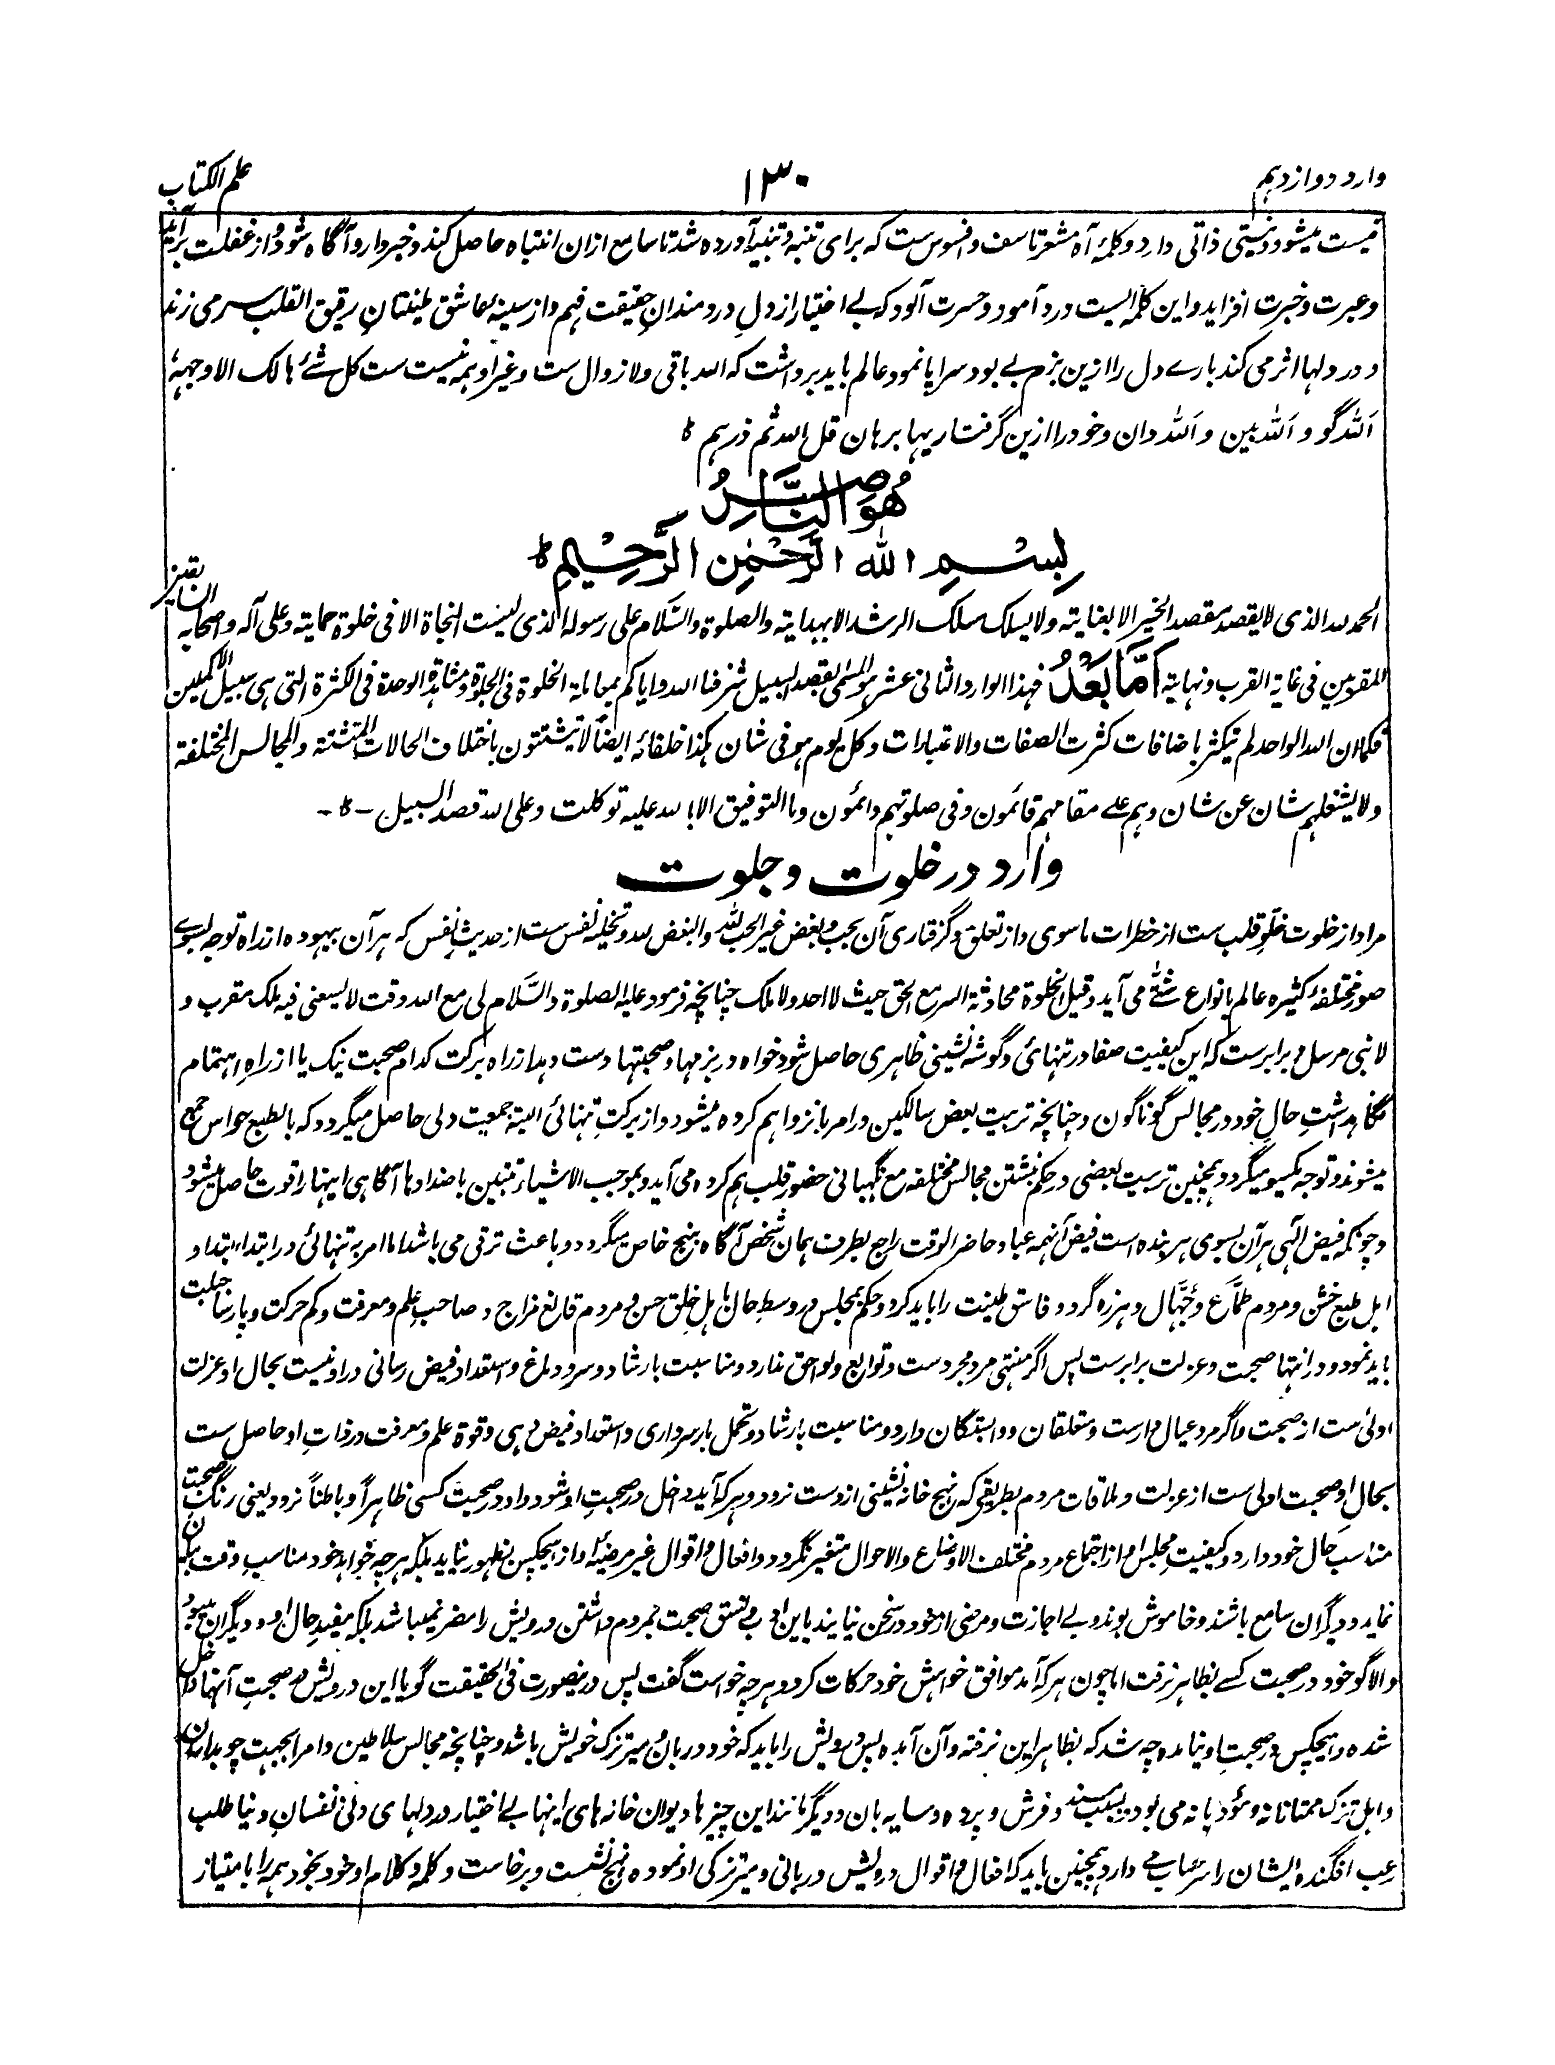 وارد دوازدهم
۱۳۰
علم الکتاب
نیست میشود و نیستی ذاتی دارد و کلمهٔ آه مشعر تاسف و افسوس ست که برای تنبه و تنبیه آورده شد تا سامع ازان انتباه حاصل کند و خبردار و آگاه شود و از غفلت برآید
و عبرت و خبرت افزاید و این کلمه ایست درد آمود و حسرت آلود که بے اختیار از دلِ دردمندانِ حقیقت فهم و از سینهٔ عاشق طینتانِ رقیق القلب سر می زند
و در دلها اثر می کند بارے دل را ازین بزم بے بود سراپا نمود عالم باید برداشت که الله باقی و لازوال ست و غیر او همه نیست ست کل شئ هالک الا وجهه
اَللّٰه گو و اَللّٰه بین و اَللّٰه دان و خود را ازین گرفتاریها برهان قل الله ثم ذرهم ط
هُوَ النَّاصِرُ
بِسْمِ اللّٰهِ الرَّحْمٰنِ الرَّحِیْمِ ط
الحمد لله الذی لا یقصد مقصد الخیر الا بغایته ولا یسلک مسلک الرشد الا بهدایته والصلوة والسَّلام علی رسوله الذی لیست النجاة الا فی خلوة حمایته وعلی آله واصحابه السابقین
المقربین فی غایة القرب ونهایته اَمَّا بَعْدُ فهذا الوارد الثانی عشر هو المسمی بقصد السبیل شرفنا الله وایاکم بمعاملة الخلوة فی الجلوة ومشاهدة الوحدة فی الکثرة التی هی سبیل الاکملین
فکما ان الله الواحد لم یتکثر باضافات کثرت الصفات والاعتبارات وکل یوم هو فی شان هکذا خلفائه ایضاً لا یتشتتون باختلاف الحالات المتشتتة والمجالس المختلفة
ولا یشغلهم شان عن شان وهم علے مقامهم قائمون وفی صلوتهم دائمون وما التوفیق الا بالله علیه توکلت وعلی الله قصد السبیل - ط -
وارد در خلوت و جلوت
مراد از خلوت خلوِ قلب ست از خطرات ماسوی و از تعلق و گرفتاری آن بحب و بغض غیر الحب لله والبغض لله و تخلیهٔ نفس ست از حدیثِ نفس که هر آن بیهوده از راه توجه بسوے
صور مختلفهٔ کثیره عالم بانواع شتّٰی می آید و قیل الخلوة محادثة السر مع الحق حیث لا احد ولا ملک چنانچه فرمود علیه الصلوة والسَّلام لی مع الله وقت لا یسعنی فیه ملک مقرب و
لا نبی مرسل و برابرست که این کیفیت صفا در تنهائی و گوشه نشینی ظاهری حاصل شود خواه در بزمها و صحبتها دست دهد از راه برکت کدام صحبت نیک یا از راه اهتمام
نگاهداشتِ حالِ خود در مجالس گوناگون و چنانچه تربیت بعض سالکین در امر بانزوا هم کرده میشود و از برکتِ تنهائی البتة جمعیت دلی حاصل میگردد که بالطبع حواس جمع
میشوند و توجه یکسو میگردد همچنین تربیت بعضی در حکم نشستن مجالس مختلفه مع نگهبانی حضور قلب هم کرده می آید و بموجب الاشیاء تتبین باضدادها آگاهی اینها را قوت حاصل میشود
و چونکه فیض الٰهی هر آن بسوی هر بنده است فیض آنهمه عباد حاضر الوقت راجع بطرف همان شخص آگاه بنهج خاص میگردد و باعث ترقی می باشد اما امر به تنهائی در ابتداء مبتداء و
اهل طبع خشن و مردم طمَّاع و جُهَّال و هرزه گرد و فاسق طینت را باید کرد و حکم مجلس در وسطِ حال باهل خلق حسن و مردم قانع مزاج و صاحب علم و معرفت و کم حرکت و پارسا جبلت
باید نمود و در انتها صحبت و عزلت برابرست پس اگر منتهی مرد مجردست و توابع و لواحق ندارد و مناسبت بارشاد و سر و دماغ و استعداد فیض رسانی در او نیست بحال او عزلت
اولیٰ ست از صحبت و اگر مرد عیالدارست و متعلقان و وابستگان دارد و مناسبت بارشاد و تحمل بار سرداری و استعداد فیض دهی و قوة علم و معرفت در ذاتِ او حاصل ست
بحالِ او صحبت اولی ست از عزلت و ملاقات مردم بطریقی که نهج خانه نشینی از دست نرود و هر که آید داخل در صحبتِ او شود و او در صحبت کسی ظاهراً و باطناً نرود یعنی رنگ صحبت
مناسب حال خود دارد و کیفیتِ مجلس او از اجتماع مردم مختلف الاوضاع والاحوال متغیر نگردد و افعال و اقوال غیر مرضیّهٔ او از هیچکس بظهور نیاید بلکه هرچه خواهد خود مناسبِ وقت بیان
نماید و دیگران سامع باشند و خاموش بوند و بے اجازت و مرضی از خود در سخن نیایند باین ادب و نسق صحبت بمردم داشتن درویش را مضر نمیباشد بلکه مفید حال او و دیگران میبود
و الا گو خود در صحبت کسے بظاهر نرفت اما چون هر که آمد موافق خواهش خود حرکات کرد و هرچه خواست گفت پس درینصورت فی الحقیقت گویا این درویش در صحبتِ آنها داخل
شده و هیچکس در صحبتِ او نیامده چه شد که بظاهر این نرفته و آن آمده پس درویش را باید که خود دربان و میر تزک خویش باشد و چنانچه مجالس سلاطین و امرا بجهت چوبداران
و اهل تزک ممتازانه و مؤدبانه می بود و بسبب مسند و فرش و پرده و سایه بان و دیگر مانند این چیزها دیوان خانه های اینها بے اختیار در دلهای دنی نفسانِ دنیا طلب
رعب افگنده ایشان را سرحساب مے دارد همچنین باید که افعال و اقوال درویش دربانی و میر تزکی او نموده نهج نشست و برخاست و کلمه و کلام او خود بخود همه را با متیاز